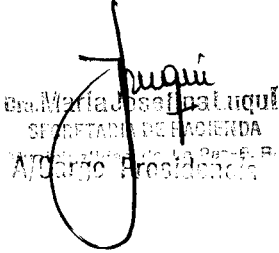 Luquí
Dra. María Josefina Luquí
SECRETARIA DE HACIENDA
de La Paz - E. R.
A/Cargo Presidencia